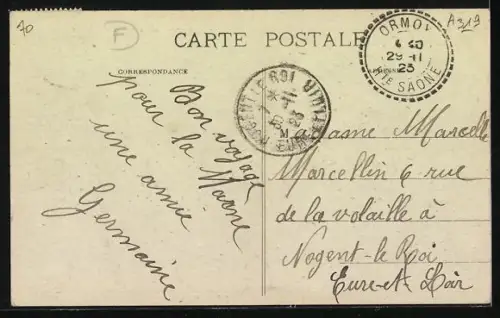 70
F
A319
CARTE POSTALE
CORRESPONDANCE
ORMOY
4 40
29 - 11
23
HTE SAONE
NOGENT-LE-ROI
30 - 11
23
Bon voyage
pour la Marne
une amie
Germaine
Madame Marcelle
Marcellin 6 rue
de la volaille à
Nogent-le Roi
Eure-et-Loir